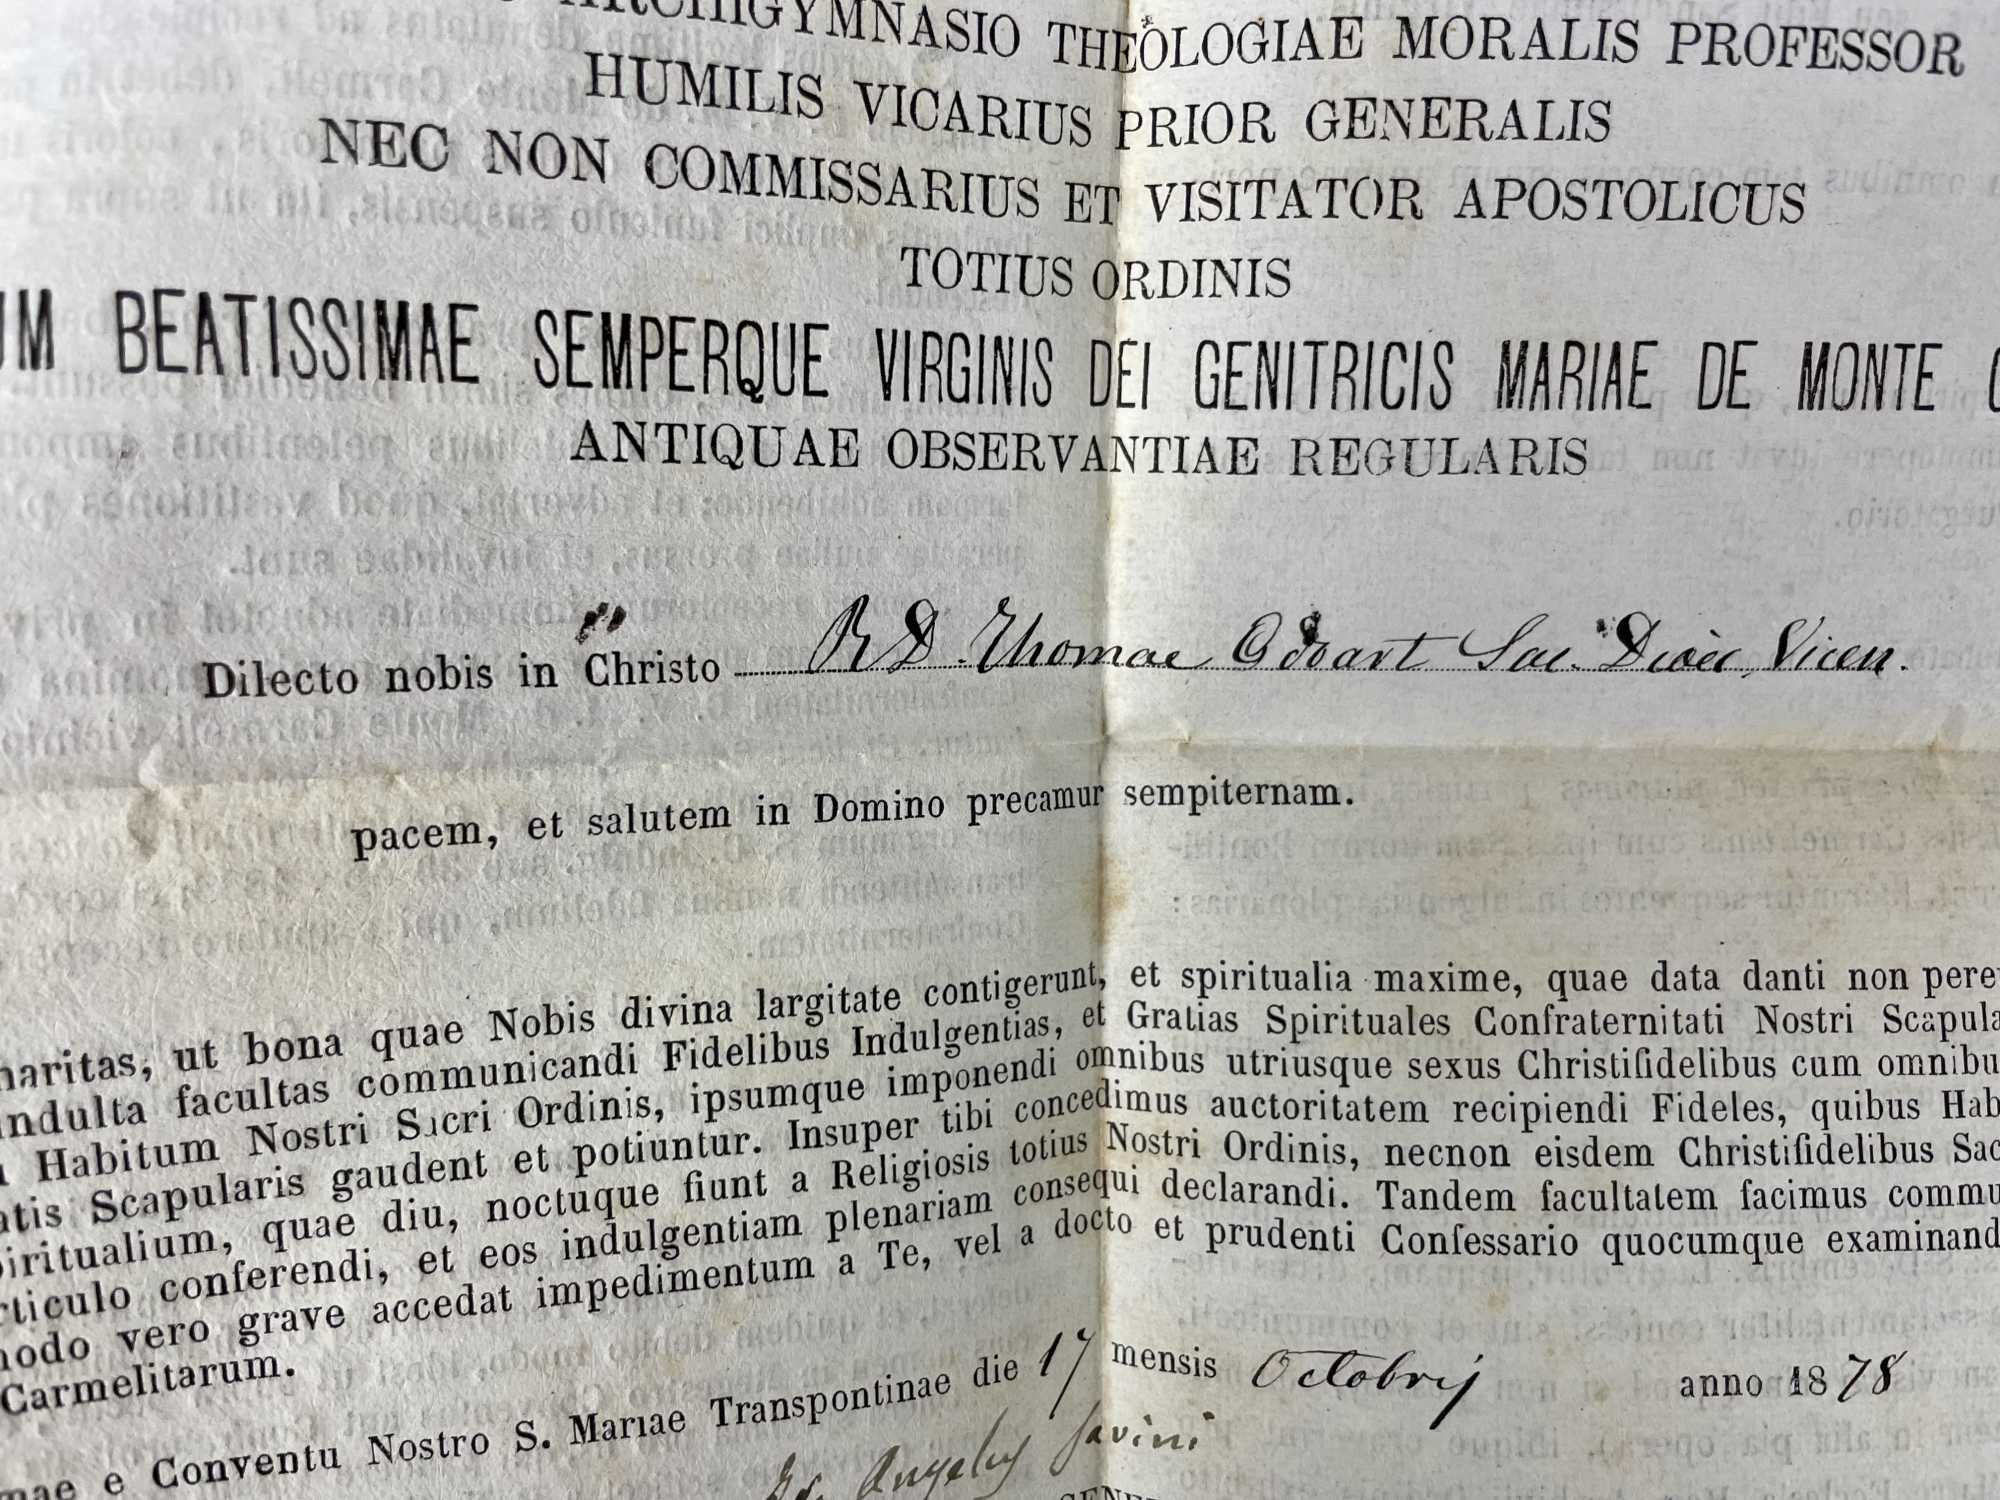 ARCHIGYMNASIO THEOLOGIAE MORALIS PROFESSOR
HUMILIS VICARIUS PRIOR GENERALIS
NEC NON COMMISSARIUS ET VISITATOR APOSTOLICUS
TOTIUS ORDINIS
UM BEATISSIMAE SEMPERQUE VIRGINIS DEI GENITRICIS MARIAE DE MONTE C
ANTIQUAE OBSERVANTIAE REGULARIS
Dilecto nobis in Christo R D. Thomae Odoart Sac. Dioec. Vicen.
pacem, et salutem in Domino precamur sempiternam.
haritas, ut bona quae Nobis divina largitate contigerunt, et spiritualia maxime, quae data danti non pere
indulta facultas communicandi Fidelibus Indulgentias, et Gratias Spirituales Confraternitati Nostri Scapula
Habitum Nostri Sacri Ordinis, ipsumque imponendi omnibus utriusque sexus Christifidelibus cum omnibu
atis Scapularis gaudent et potiuntur. Insuper tibi concedimus auctoritatem recipiendi Fideles, quibus Hab
piritualium, quae diu, noctuque fiunt a Religiosis totius Nostri Ordinis, necnon eisdem Christifidelibus Sac
rticulo conferendi, et eos indulgentiam plenariam consequi declarandi. Tandem facultatem facimus commu
modo vero grave accedat impedimentum a Te, vel a docto et prudenti Confessario quocumque examinand
Carmelitarum.
mae e Conventu Nostro S. Mariae Transpontinae die 17 mensis Octobrij anno 1878
Angelus Savini
GENE